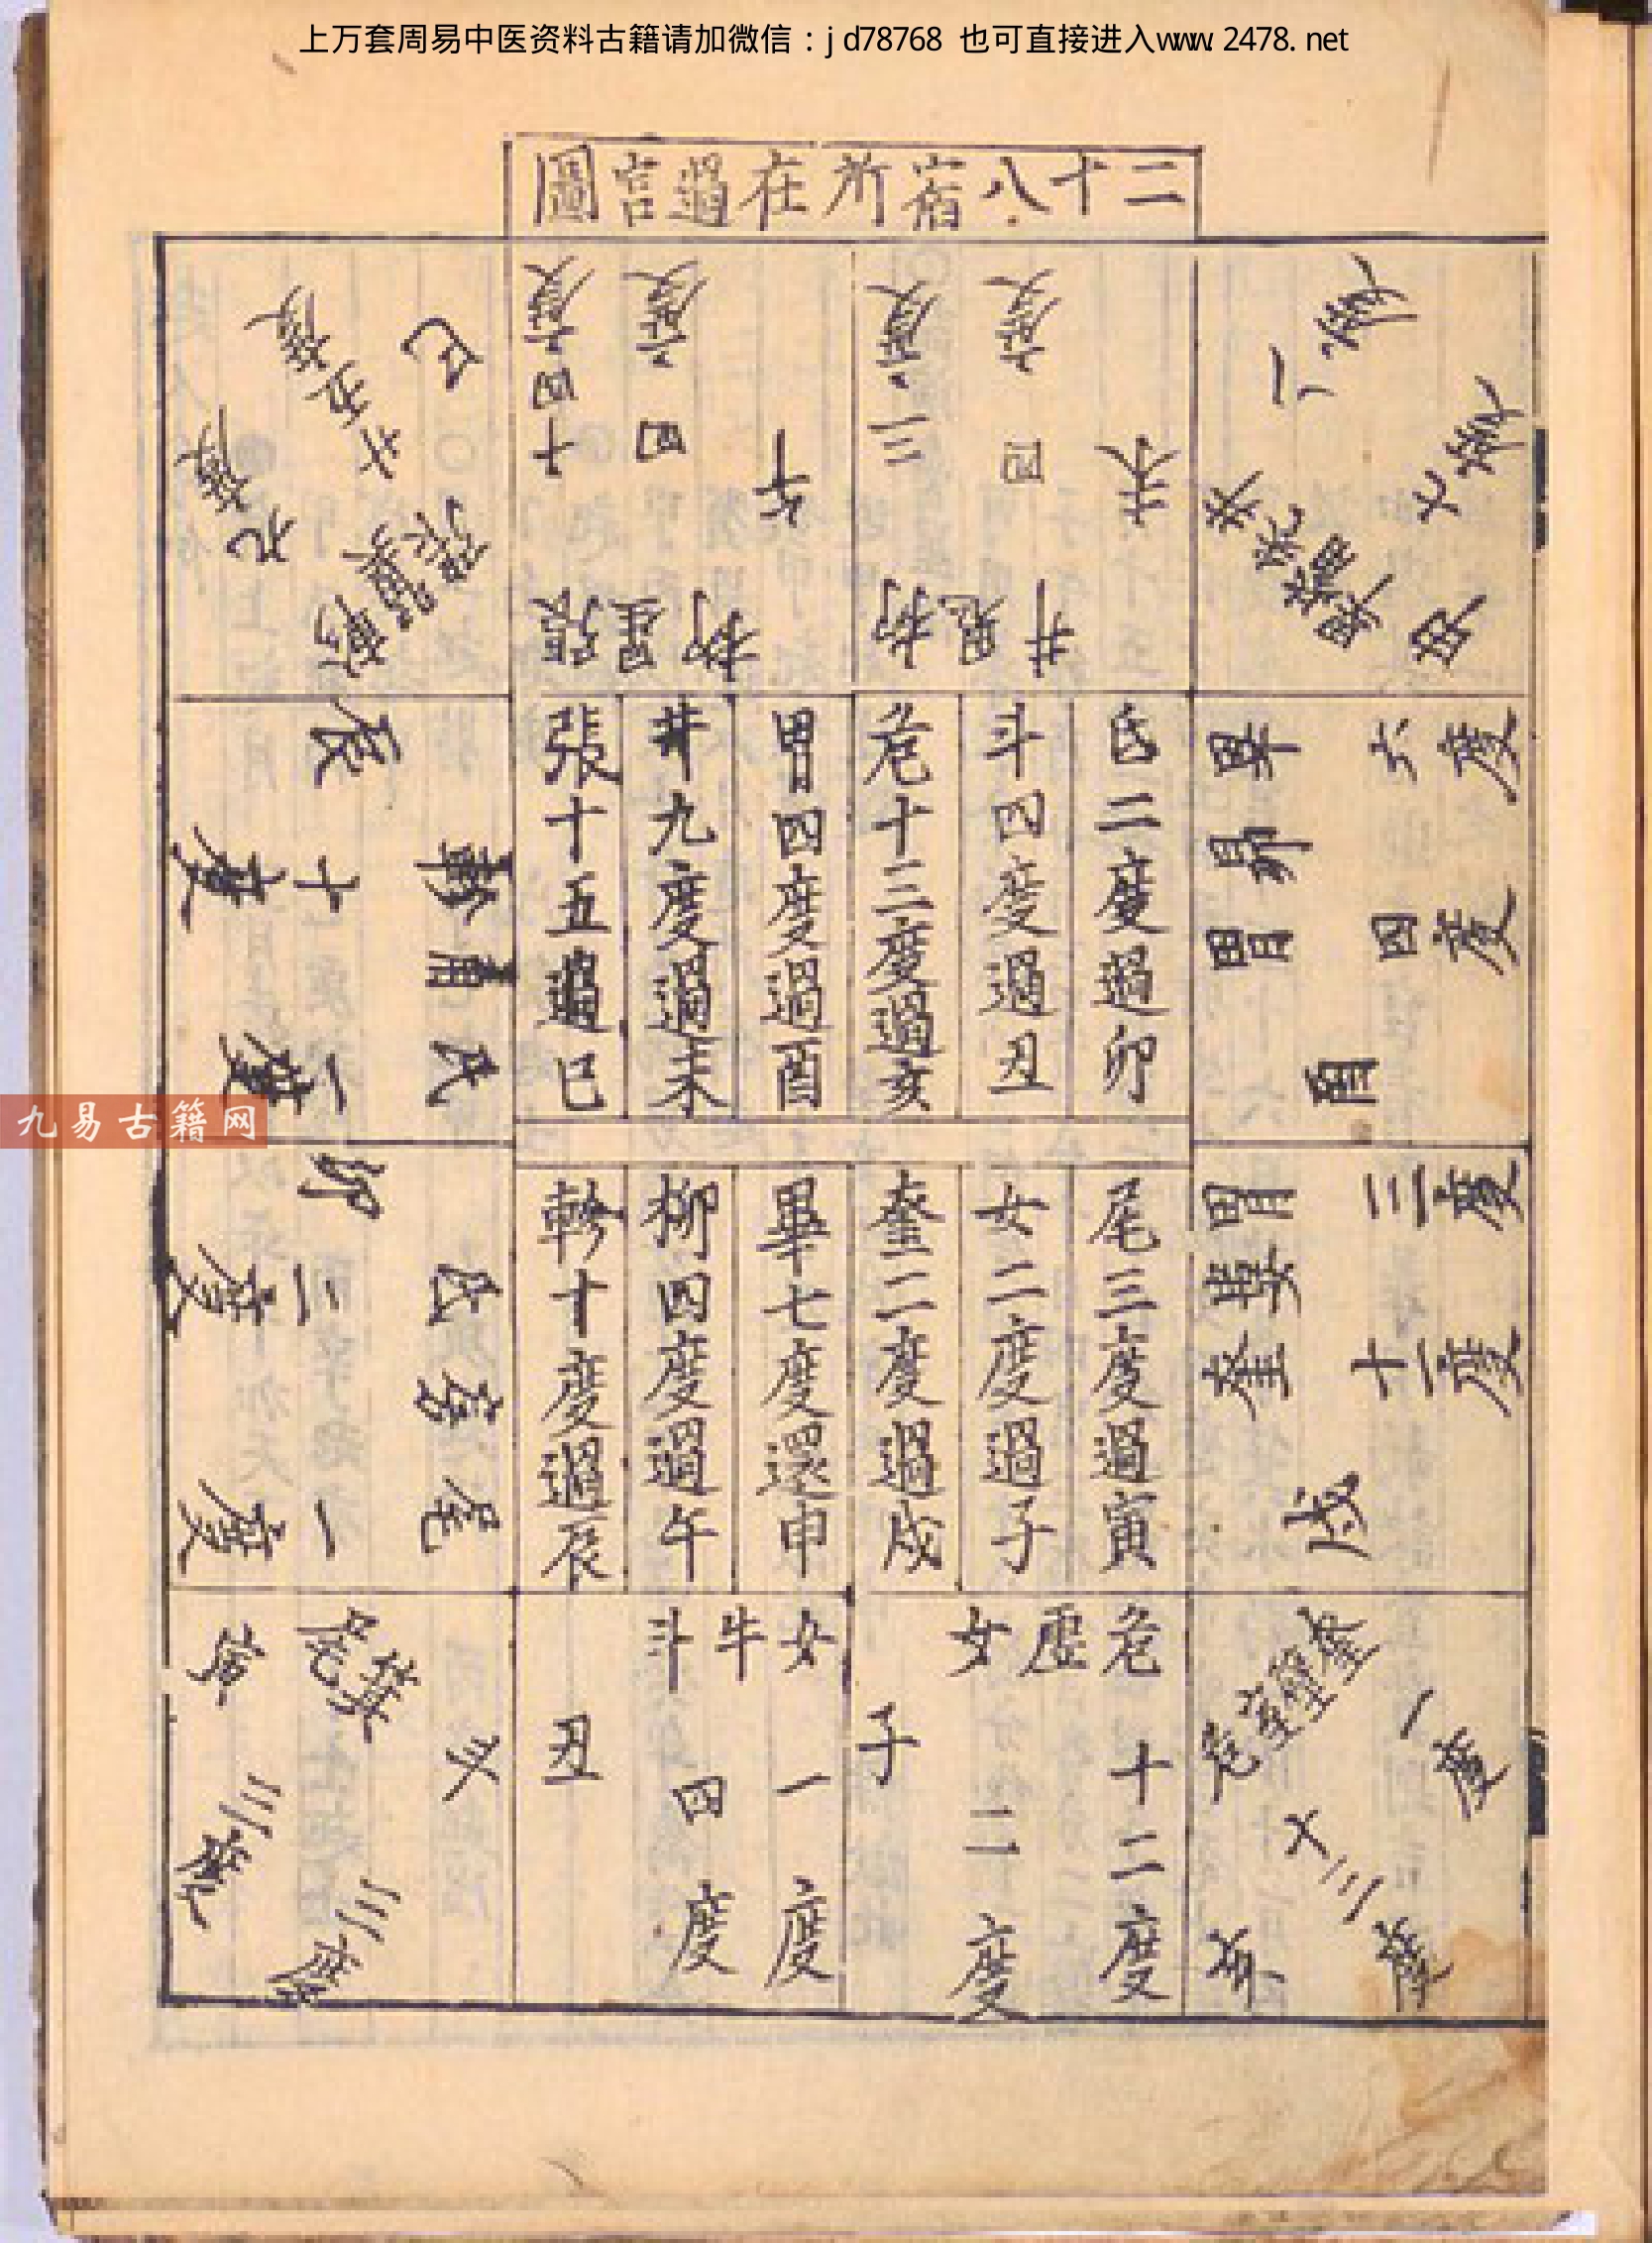 上万套周易中医资料古籍请加微信：jd78768 也可直接进入www.2478.net
二十八宿所在過宫圖
氐二度過卯
斗四度過丑
危十三度過亥
胃四度過酉
井九度過未
張十五過巳
尾三度過寅
女二度過子
奎二度過戌
畢七度還申
柳四度過午
軫十度過辰
申
畢
七度
一度
未
井鬼柳
四度
三度
午
柳星張
四度
十四度
巳
張翼軫
十五度
九度
畢昴胃
六度
四度
酉
辰
軫角亢
十度
一度
胃婁奎
三度
十一度
戌
卯
氐房尾
二度
一度
奎壁室危
一度
十三度
亥
危虛女
十二度
二度
子
女牛斗
一度
四度
丑
寅
尾箕
斗
三度
三度
九易古籍网